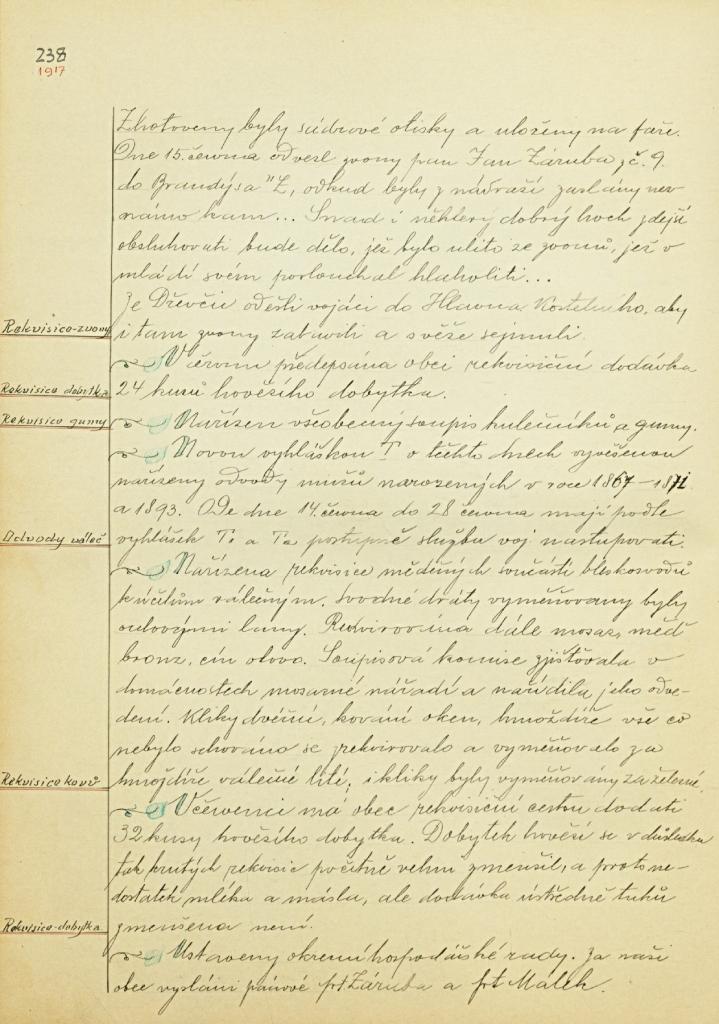 238
1917
Zhotoveny byly sádrové otisky a uloženy na faře.
Dne 15. června odvezl zvony pan Jan Záruba z č. 9.
do Brandýsa "L, odkud byly z nádraží zaslány nez-
námo kam... Snad i některý dobrý hoch zdejší
obsluhovati bude dělo, jež bylo ulito ze zvonů, jež v
mládí svém poslouchal hlaholiti...
Ze Dřevčic odešli vojáci do Hlavna Kostelního, aby
Rekvisice-zvonů
i tam zvony zabavili a s věže sejmuli.
V červnu předepsána obci rekvisiční dodávka
Rekvisice dobytka
24 kusů hovězího dobytka.
Rekvisice gumy
Nařízen všeobecný soupis kulečníků a gumy.
Novou vyhláškou T o těchto dnech vyvěšenou
nařízeny odvody mužů narozených v roce 1867-1871
a 1893. Ode dne 14. června do 28 června mají podle
Odvody váleč
vyhlášek T1 a Ta postupně službu voj. nastupovati.
Nařízena rekvisice měděných součástí bleskosvodů
k účelům válečným. Svodné dráty vyměňovány byly
ocelovými lany. Rekvirována dále mosaz, měď
bronz, cín olovo. Soupisová komise zjišťovala v
domácnostech mosazné nářadí a nařídila jeho odve-
dení. Kliky dvéřní, kování oken, hmoždíře vše co
nebylo schováno se zrekvirovalo a vyměňovalo za
Rekvisice kovů
hmoždíře válečné lité, i kliky byly vyměňovány za železné.
V červenci má obec rekvisiční cestou dodati
32 kusy hovězího dobytka. Dobytek hovězí se v důsledku
tak krutých rekvisic početně velmi zmenšil, a proto ne-
dostatek mléka a másla, ale dodávka ústředně tuků
Rekvisice-dobytka
zmenšena není.
Ustaveny okresní hospodářské rady. Za naši
obec vysláni pánové frt. Záruba a frt Málek.